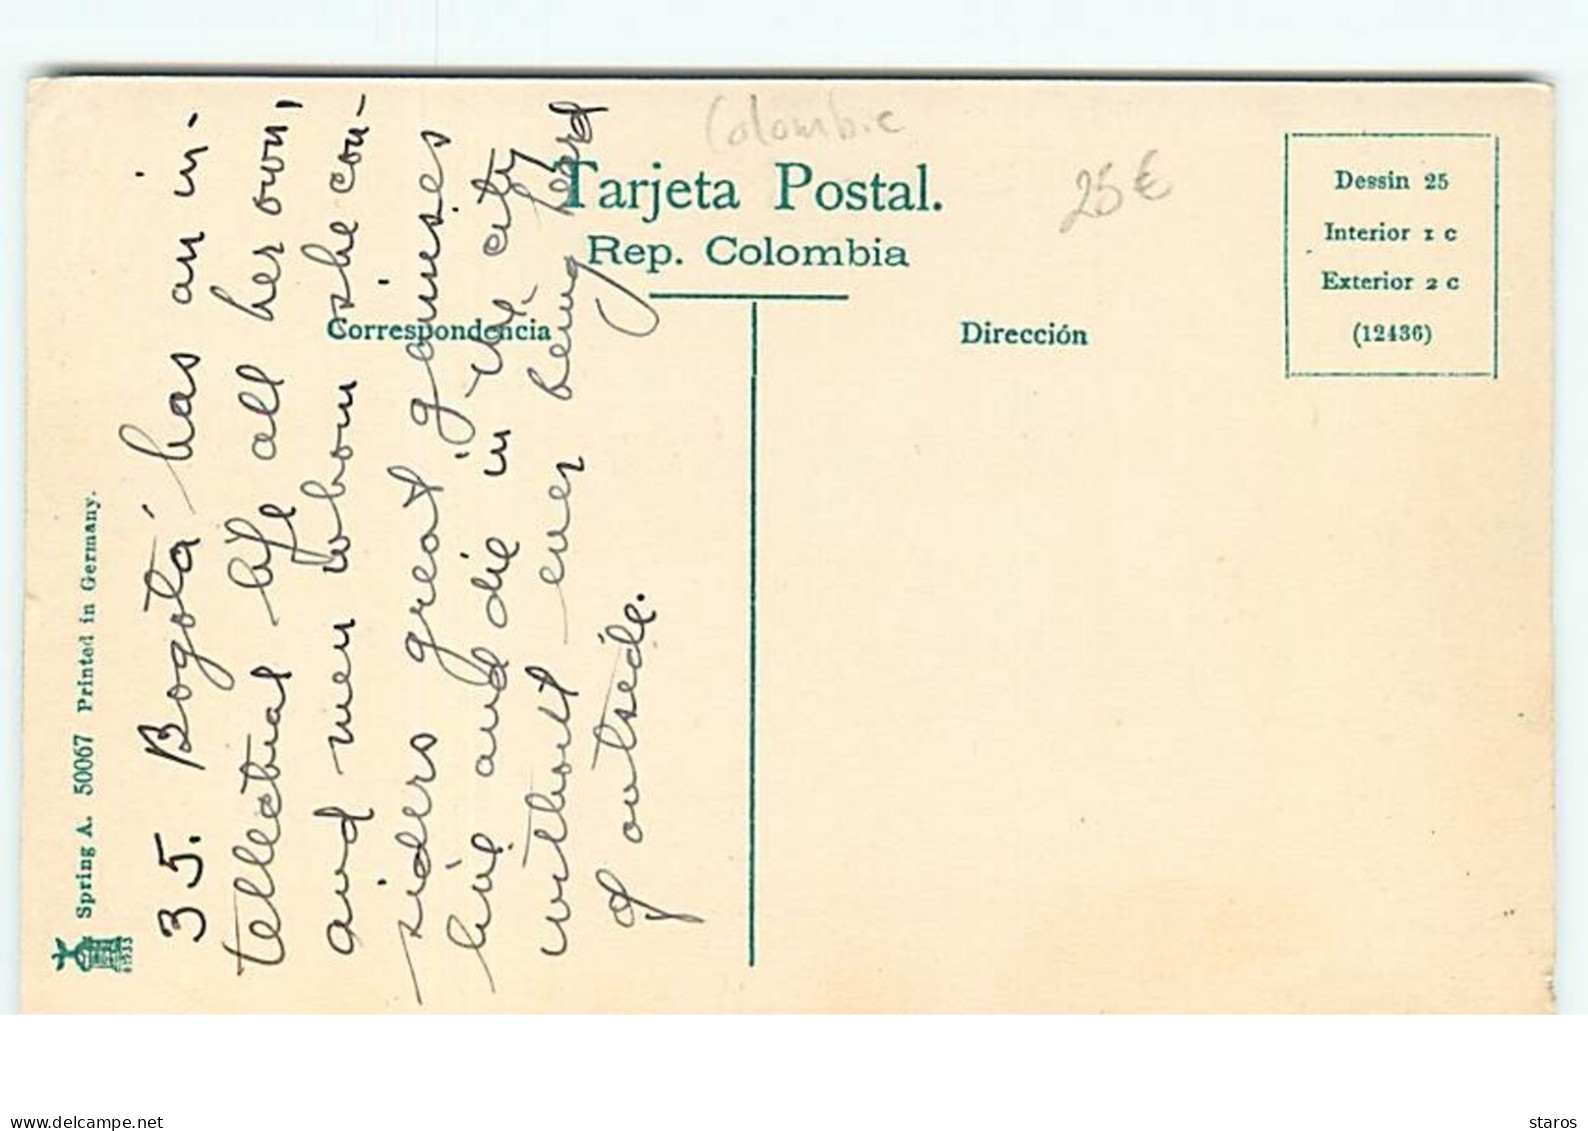 Colombie
25 €
Tarjeta Postal.
Rep. Colombia
Correspondencia
Dirección
Dessin 25
Interior 1 c
Exterior 2 c
(12436)
Spring A. 50067 Printed in Germany.
35. Bogotá has an in-
tellectual life all her own,
and men whom she con-
siders great geniuses
live and die in the city
without ever being herd
of outside.
www.delcampe.net
staros